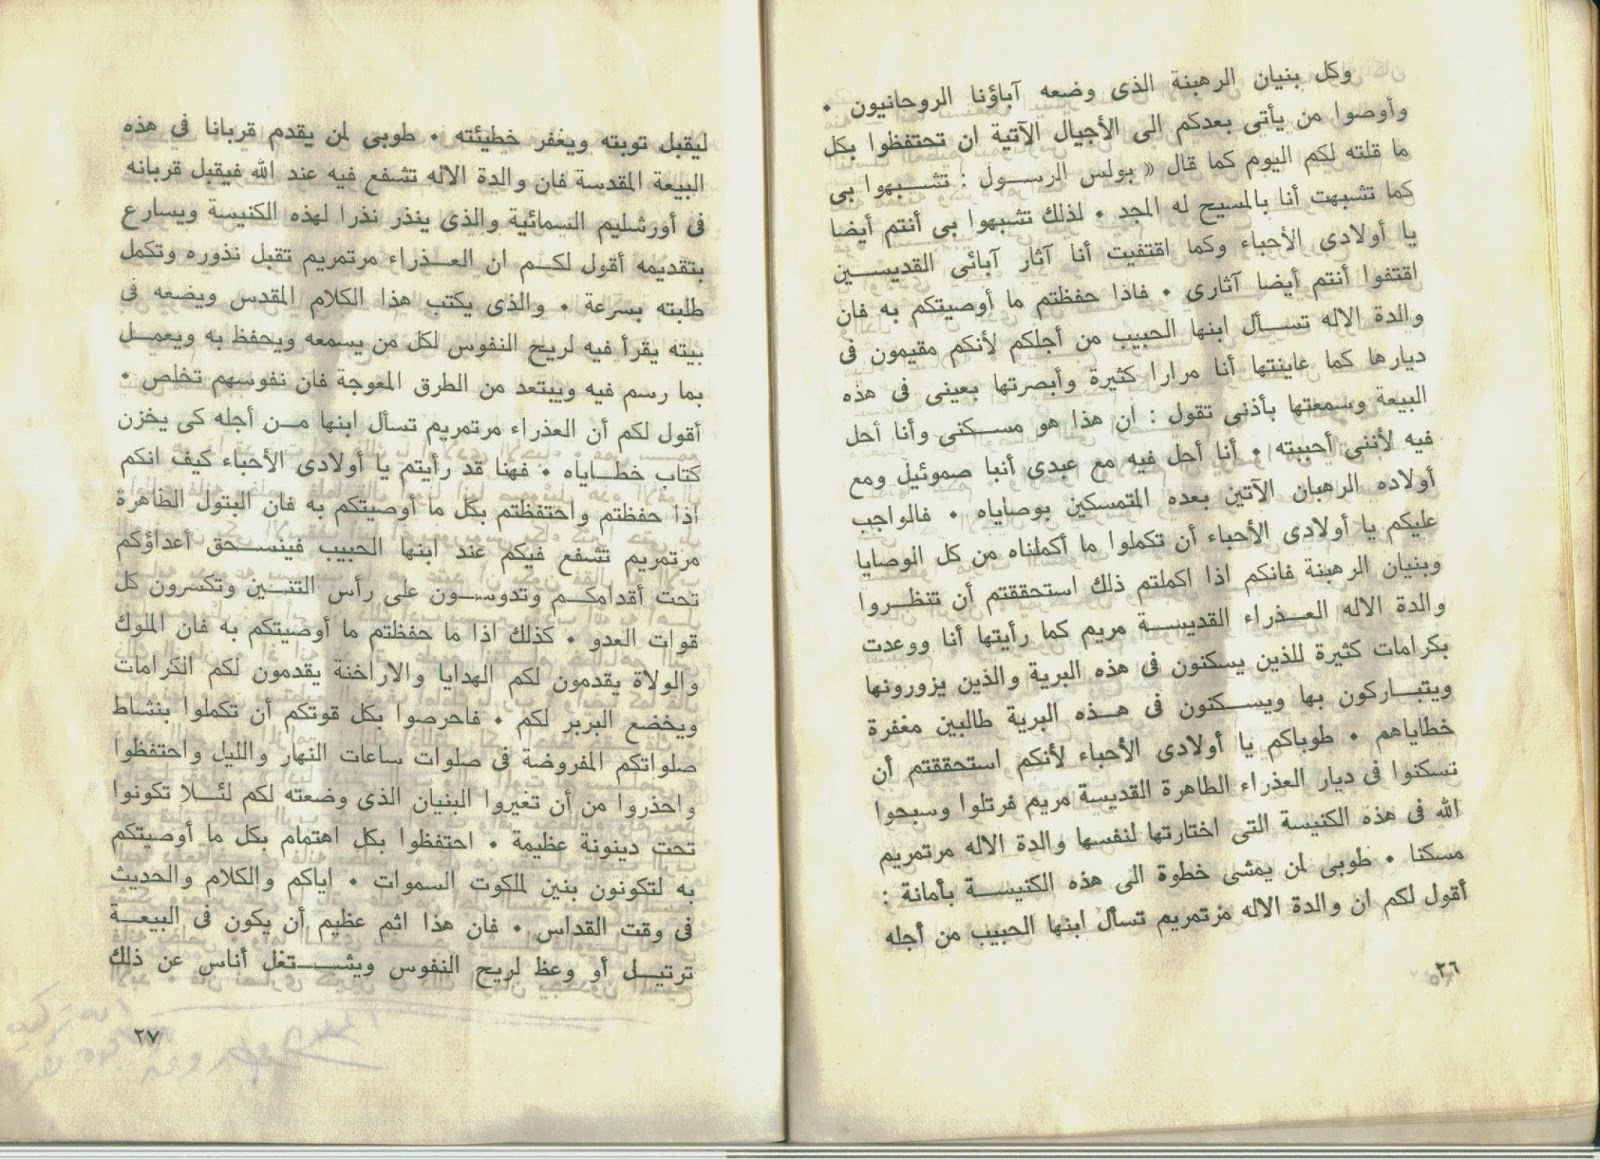 وكل بنيان الرهبنة الذى وضعه آباؤنا الروحانيون •
وأوصوا من يأتى بعدكم الى الأجيال الآتية ان تحتفظوا بكل
ما قلته لكم اليوم كما قال « بولس الرسول : تشبهوا بى
كما تشبهت أنا بالمسيح له المجد • لذلك تشبهوا بى أنتم أيضا
يا أولادى الأحباء وكما اقتفيت أنا آثار آبائى القديسين
اقتفوا أنتم أيضا آثارى • فاذا حفظتم ما أوصيتكم به فان
والدة الاله تسأل ابنها الحبيب من أجلكم لأنكم مقيمون فى
ديارها كما عاينتها أنا مرارا كثيرة وأبصرتها بعينى فى هذه
البيعة وسمعتها بأذنى تقول : ان هذا هو مسكنى وأنا أحل
فيه لأننى أحببته • أنا أحل فيه مع عبدى أنبا صموئيل ومع
أولاده الرهبان الآتين بعده المتمسكين بوصاياه • فالواجب
عليكم يا أولادى الأحباء أن تكملوا ما أكملناه من كل الوصايا
وبنيان الرهبنة فانكم اذا اكملتم ذلك استحققتم أن تنظروا
والدة الاله العذراء القديسة مريم كما رأيتها أنا ووعدت
بكرامات كثيرة للذين يسكنون فى هذه البرية والذين يزورونها
ويتباركون بها ويسكنون فى هذه البرية طالبين مغفرة
خطاياهم • طوباكم يا أولادى الأحباء لأنكم استحققتم أن
تسكنوا فى ديار العذراء الطاهرة القديسة مريم فرتلوا وسبحوا
الله فى هذه الكنيسة التى اختارتها لنفسها والدة الاله مرتمريم
مسكنا • طوبى لمن يمشى خطوة الى هذه الكنيسة بأمانة :
أقول لكم ان والدة الاله مرتمريم تسأل ابنها الحبيب من أجله
٢٦
ليقبل توبته ويغفر خطيئته • طوبى لمن يقدم قربانا فى هذه
البيعة المقدسة فان والدة الاله تشفع فيه عند الله فيقبل قربانه
فى أورشليم السمائية والذى ينذر نذرا لهذه الكنيسة ويسارع
بتقديمه أقول لكم ان العذراء مرتمريم تقبل نذوره وتكمل
طلبته بسرعة • والذى يكتب هذا الكلام المقدس ويضعه فى
بيته يقرأ فيه لريح النفوس لكل من يسمعه ويحفظ به ويعمل
بما رسم فيه ويبتعد من الطرق المعوجة فان نفوسهم تخلص •
أقول لكم أن العذراء مرتمريم تسأل ابنها من أجله كى يخزن
كتاب خطاياه • فهنا قد رأيتم يا أولادى الأحباء كيف انكم
اذا حفظتم واحتفظتم بكل ما أوصيتكم به فان البتول الطاهرة
مرتمريم تشفع فيكم عند ابنها الحبيب فينسحق أعداؤكم
تحت أقدامكم وتدوسون على رأس التنين وتكسرون كل
قوات العدو • كذلك اذا ما حفظتم ما أوصيتكم به فان الملوك
والولاة يقدمون لكم الهدايا والاراخنة يقدمون لكم الكرامات
ويخضع البربر لكم • فاحرصوا بكل قوتكم أن تكملوا بنشاط
صلواتكم المفروضة فى صلوات ساعات النهار والليل واحتفظوا
واحذروا من أن تغيروا البنيان الذى وضعته لكم لئلا تكونوا
تحت دينونة عظيمة • احتفظوا بكل اهتمام بكل ما أوصيتكم
به لتكونون بنين لملكوت السموات • اياكم والكلام والحديث
فى وقت القداس • فان هذا اثم عظيم أن يكون فى البيعة
ترتيل أو وعظ لريح النفوس ويشتغل أناس عن ذلك
٢٧